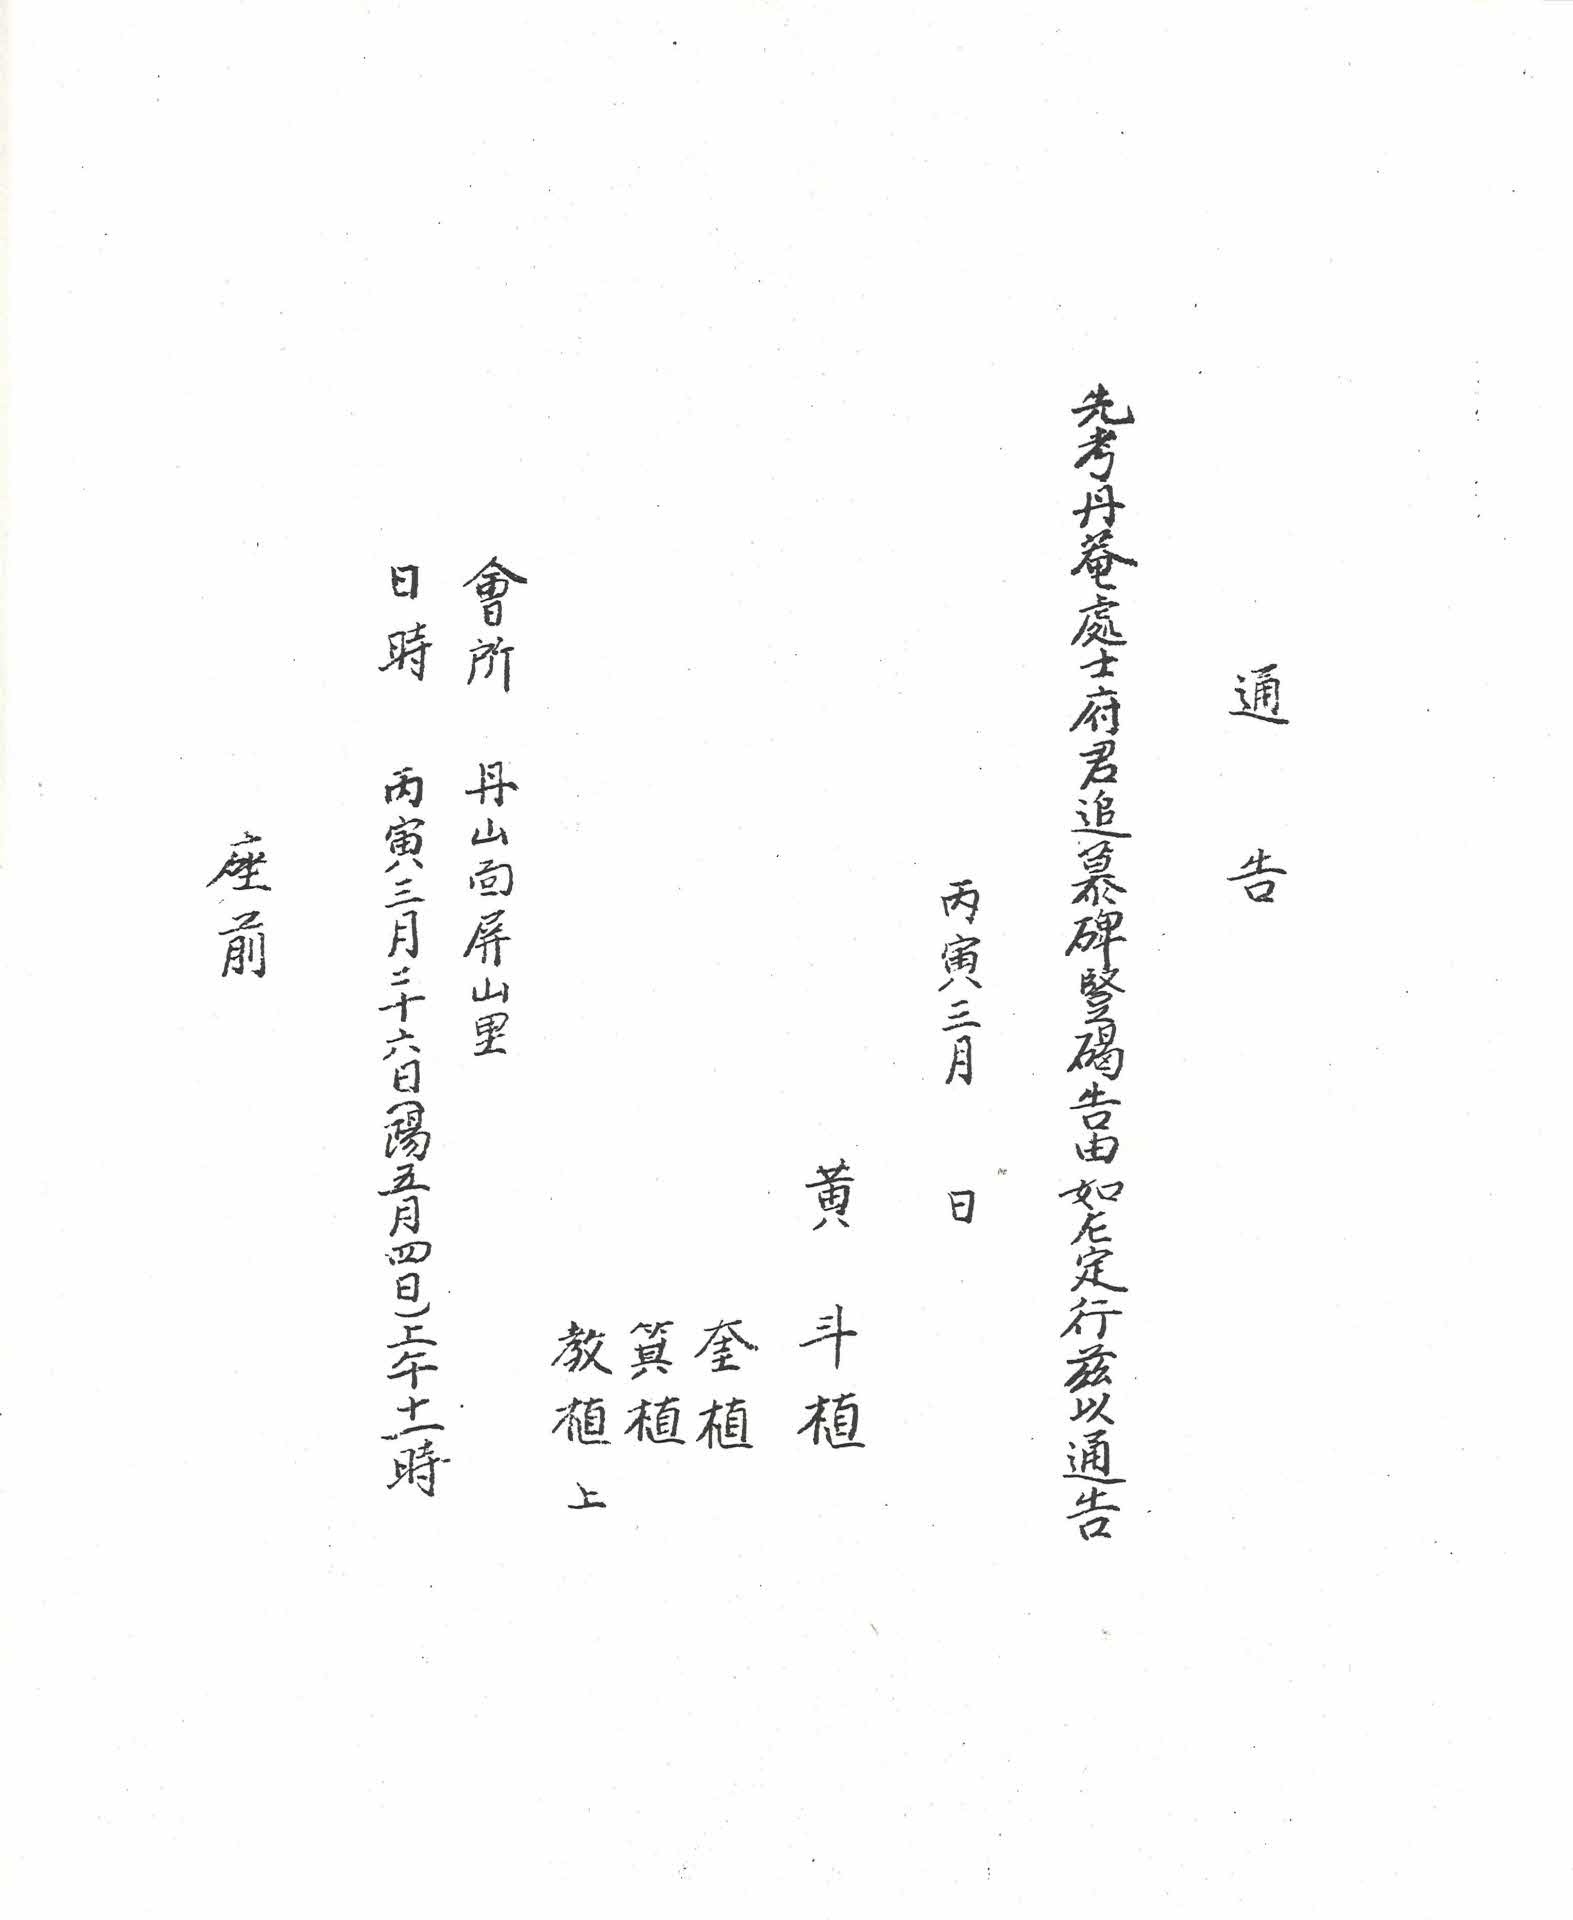 通告
先考丹菴處士府君追慕碑竪碣告由如左定行茲以通告
丙寅三月 日
黃 斗植
奎植
箕植
教植 上
會所 丹山面屛山里
日時 丙寅三月二十六日(陽五月四日)上午十一時
座前